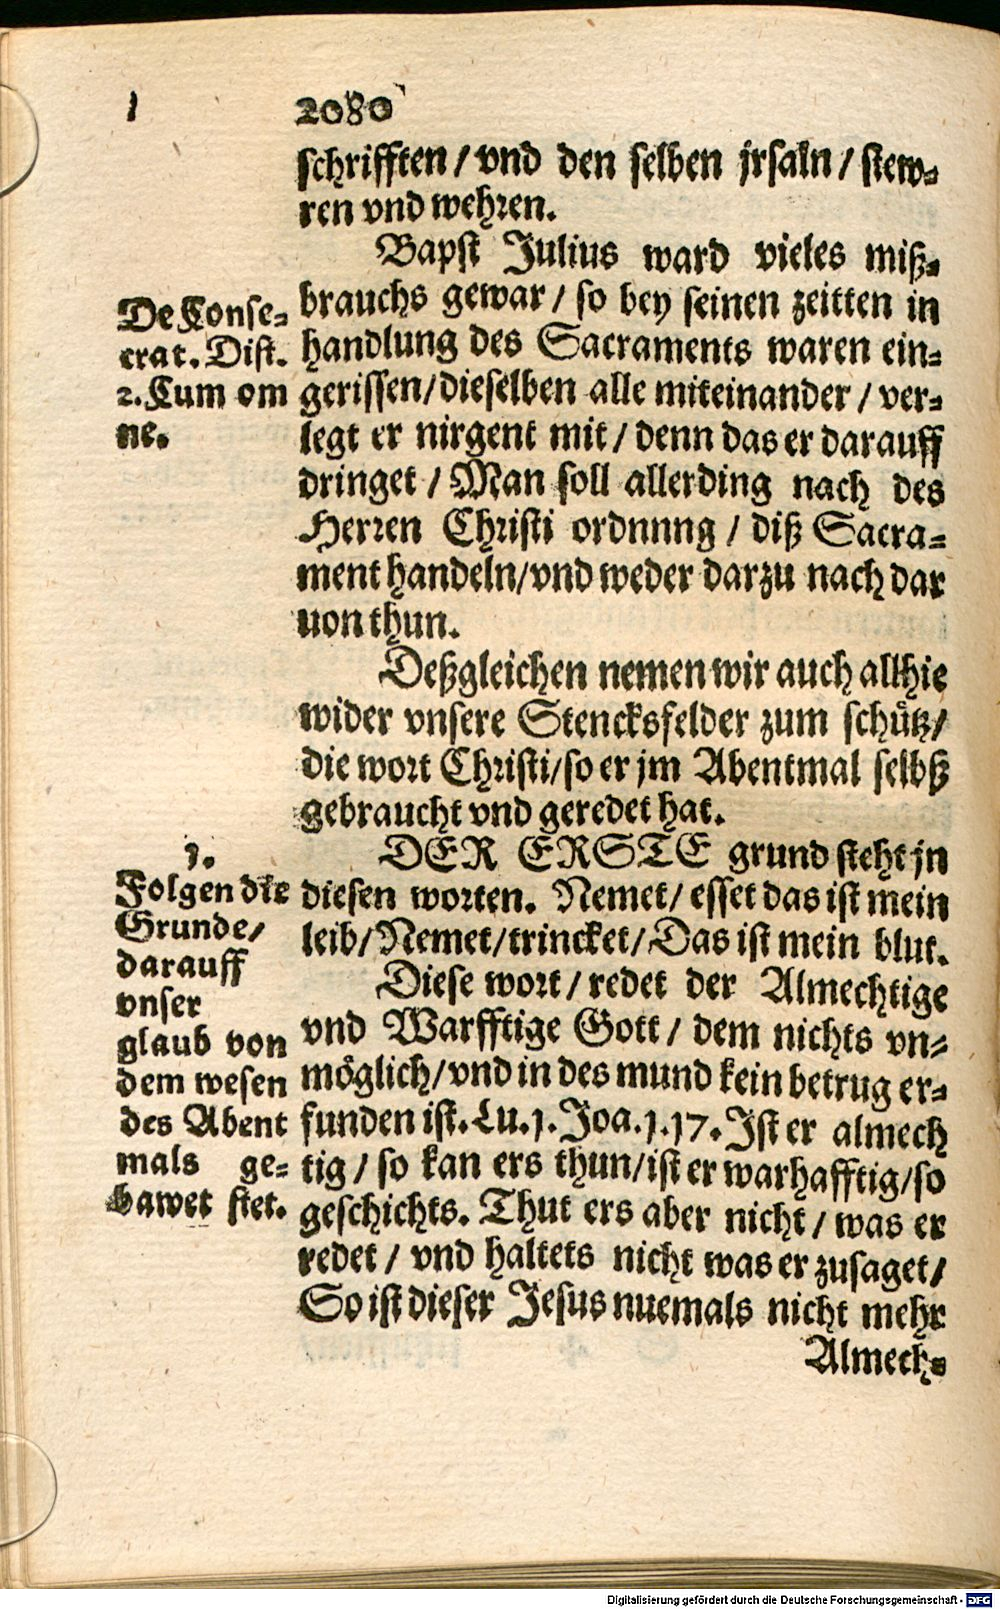 2080
schrifften / vnd den selben jrsaln / stew-
ren vnd wehren.
Bapst Julius ward vieles miß-
brauchs gewar / so bey seinen zeitten in
handlung des Sacraments waren ein-
gerissen / dieselben alle miteinander / ver-
legt er nirgent mit / denn das er darauff
dringet / Man soll allerding nach des
Herren Christi ordnnng / diß Sacra-
ment handeln / vnd weder darzu nach dar
uon thun.
De Conse-
crat. Dist.
2. Cum om
ne.
Deßgleichen nemen wir auch allhie
wider vnsere Stencksfelder zum schütz /
die wort Christi / so er jm Abentmal selbß
gebraucht vnd geredet hat.
DER ERSTE grund steht jn
diesen worten. Nemet / esset das ist mein
leib / Nemet / trincket / Das ist mein blut.
Diese wort / redet der Almechtige
vnd Warfftige Gott / dem nichts vn-
möglich / vnd in des mund kein betrug er-
funden ist. Lu. 1. Joa. 1. 17. Ist er almech
tig / so kan ers thun / ist er warhafftig / so
geschichts. Thut ers aber nicht / was er
redet / vnd haltets nicht was er zusaget /
So ist dieser Jesus nuemals nicht mehr
Almech-
1.
Folgen die
Grunde /
darauff
vnser
glaub von
dem wesen
des Abent
mals ge-
bawet stet.
Digitalisierung gefördert durch die Deutsche Forschungsgemeinschaft - DFG